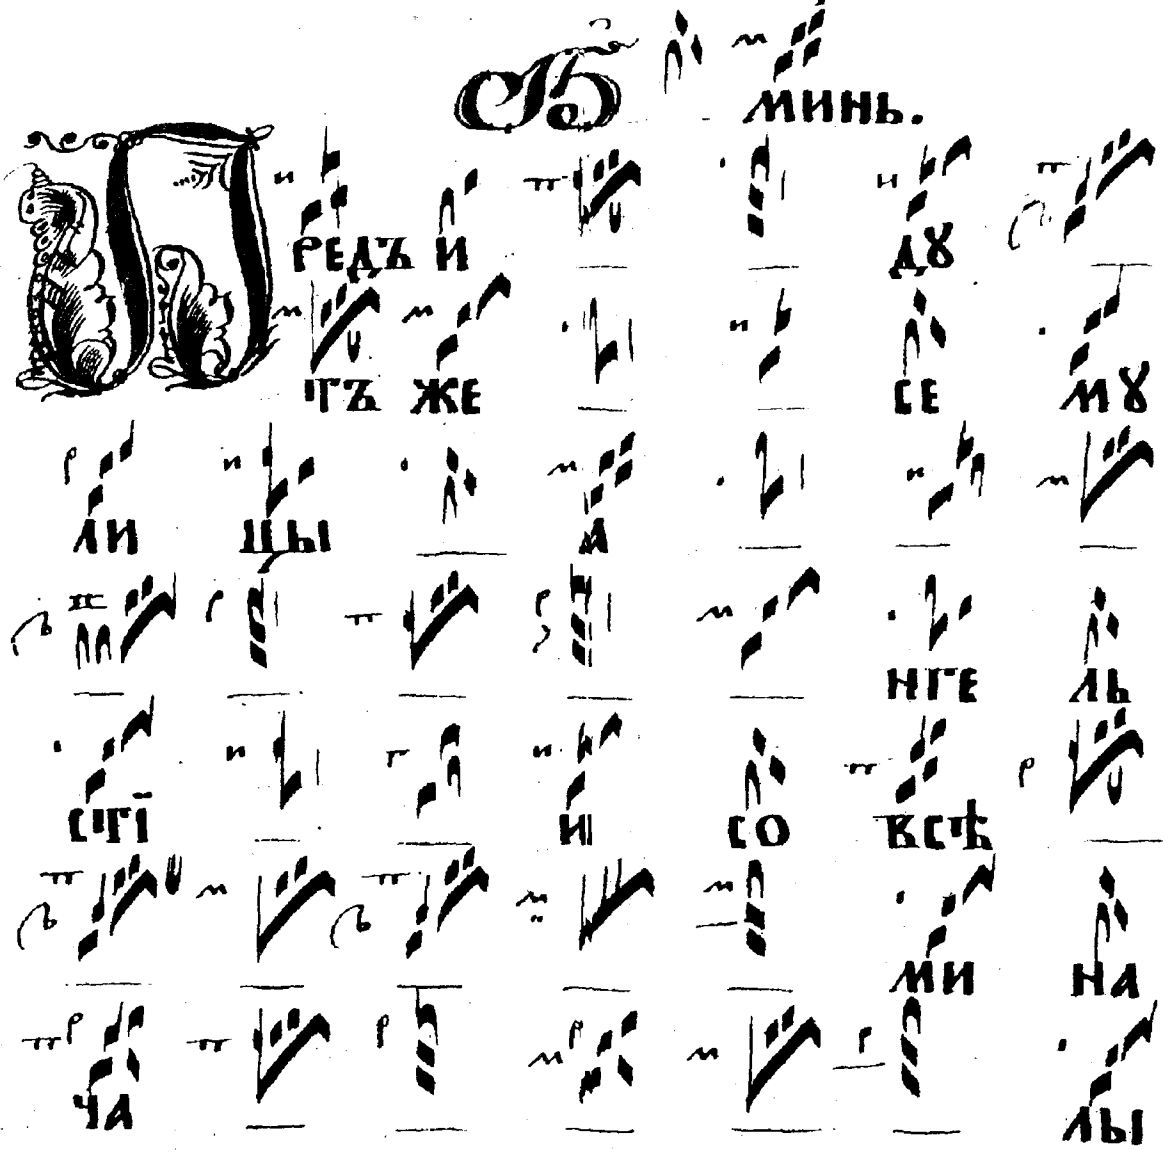 минь.
Предъ и дꙋ
тъ же се мꙋ
ли цы а
нге ль
стї и со всѣ
ми на
ча лы